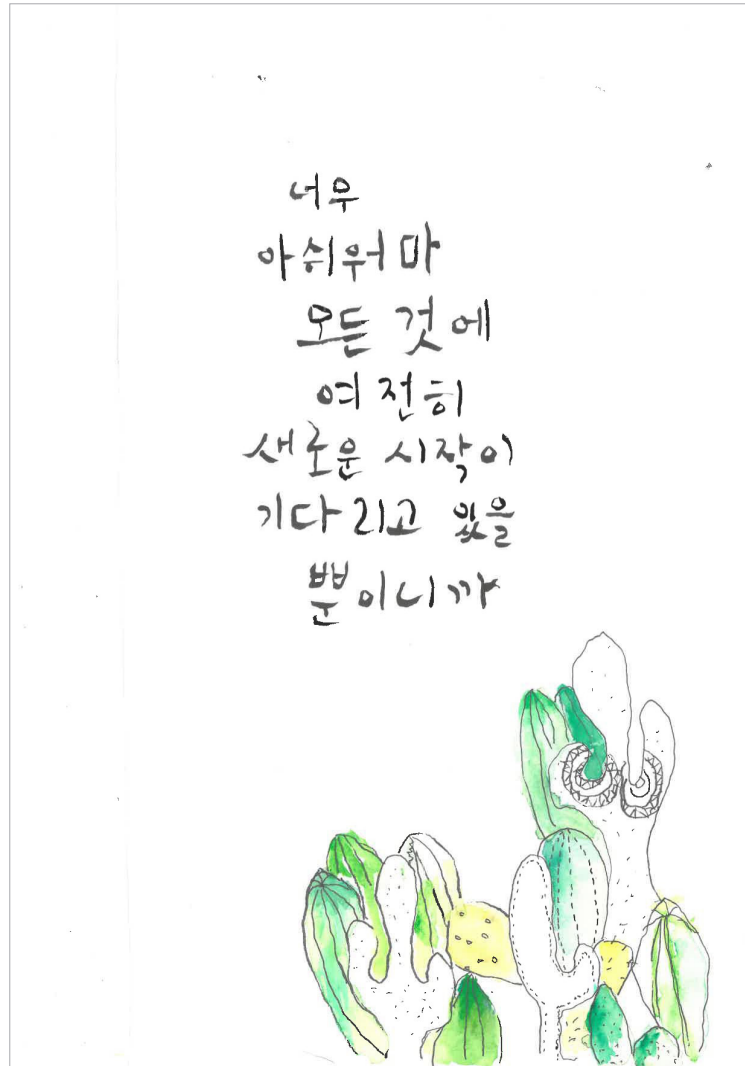 너무
아쉬워 마
모든 것에
여전히
새로운 시작이
기다리고 있을
뿐이니까